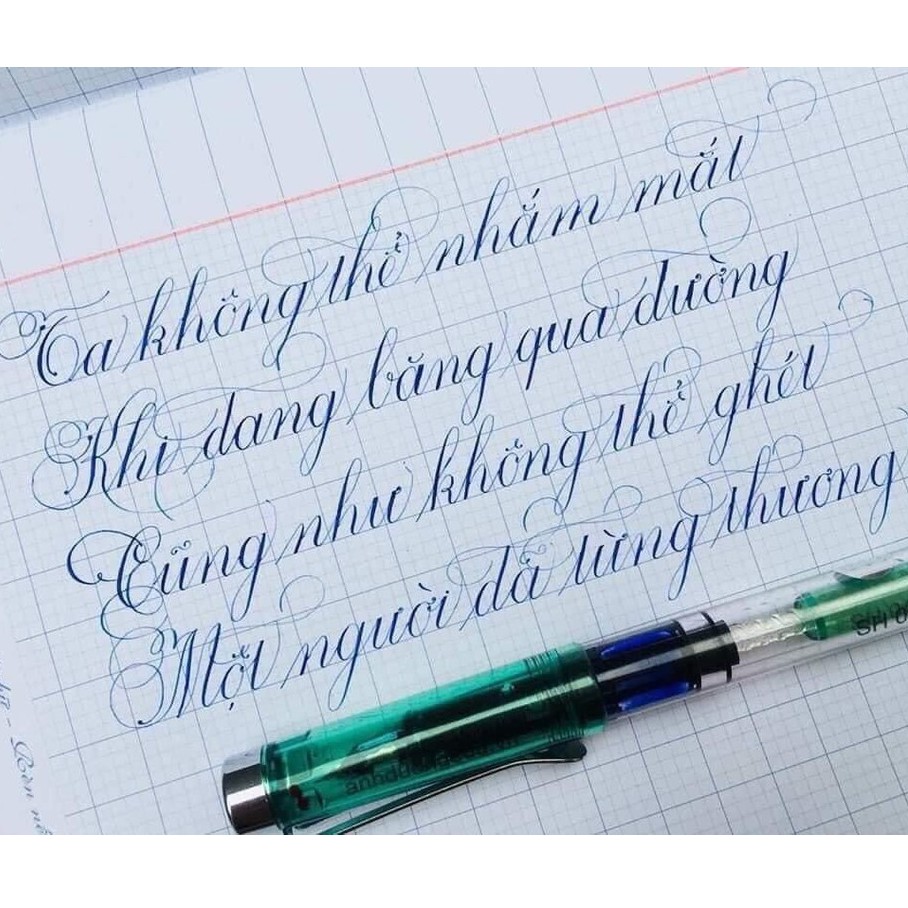 Ta không thể nhắm mắt
Khi đang băng qua đường
Cũng như không thể ghét
Một người đã từng thương
SH 0